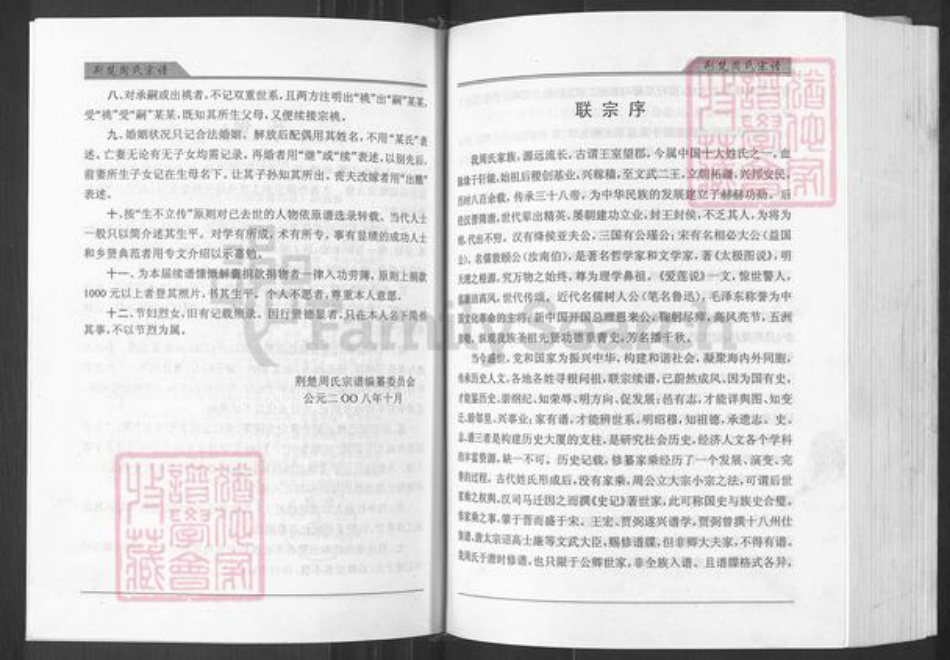 荆楚周氏宗谱
八、对承嗣或出桃者,不记双重世系,且两方注明出“桃”出“嗣”某某,
受“桃”受“嗣”某某,既知其所生父母,又便续接宗桃。
九、婚姻状况只记合法婚姻。解放后配偶用其姓名,不用“某氏”表
述。亡妻无论有无子女均需记录。再婚者用“继”或“续”表述,以别先后,
前妻所生子女记在生母名下,让其子孙知其所出,丧夫改嫁者用“出醮”
表述。
十、按“生不立传”原则对已去世的人物依原谱选录转载。当代人士
一般只以简介述其生平。对学有所成,术有所专,事有显绩的成功人士
和乡贤典范者用专文介绍以示著勉。
十一、为本届续谱慷慨解囊捐款捐物者一律入功劳簿,原则上捐款
1000元以上者登其照片,书其生平。个人不愿者,尊重本人意愿。
十二、节妇烈女,旧有记载照录。因行贤德显者,只在本人名下简叙
其事,不以节烈为属。
荆楚周氏宗谱编纂委员会
公元二〇〇八年十月
荆楚周氏宗谱
联宗序
我周氏家族,源远流长,古谓王室望郡,今属中国十大姓氏之一,血
脉缘于轩辕,始祖后稷创基业,兴稼穑,至文武二王,立朝拓疆,兴邦安民,
历时八百余载,传承三十八帝,为中华民族的发展建立了赫赫功勋。后
经汉晋隋唐,世代辈出精英,屡朝建功立业,封王封侯,不乏其人,为将为
相,代出不穷。汉有绛侯亚夫公,三国有公瑾公;宋有名相必大公(益国
公),名儒敦颐公(汝南伯),是著名哲学家和文学家,著《太极图说》,明
天理之根源,究万物之始终,尊为理学鼻祖。《爱莲说》一文,惊世警人,
高风,世代传颂。近代名儒树人公(笔名鲁迅),毛泽东称誉为中
国文化革命的主将;新中国开国总理恩来公,鞠躬尽瘁,高风亮节,五洲
纵观我族圣祖先贤功德景青史,芳名播千秋。
当今盛世,党和国家为振兴中华,构建和谐社会,凝聚海内外同胞,
传承历史人文,各地各姓寻根问祖,联宗续谱,已蔚然成风。因为国有史,
才能鉴历史、崇纲纪、知荣辱、明方向、促发展;邑有志,才能详舆图、知变
迁、睦邻里、兴事业;家有谱,才能辨世系,明昭穆,知祖德,承遗志。史、
志、谱三者是构建历史大厦的支柱,是研究社会历史,经济人文各个学科
的丰富资源,缺一不可。历史记载,修纂家乘经历了一个发展、演变、完
善的过程。古代姓氏形成后,没有家乘,周公立大宗小宗之法,可谓后世
家乘之权舆,汉司马迁因之而撰《史记》著世家,此可称国史与族史合璧。
修家乘之事,肇于晋而盛于宋。王宏、贾弼遂兴谱学,贾弼曾撰十八州仕
族谱,唐太宗诏高士廉等文武大臣,赐修谱牒,但非卿大夫家,不得有谱。
我周氏于唐时修谱,也只限于公卿世家,非全族入谱。且谱牒格式各异,
FamilySearch